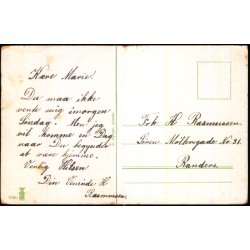 Kære Marie!
Du maa ikke
vente mig imorgen
Søndag. Men jeg
vil komme en Dag
naar Du begynder
at være hjemme.
Venlig Hilsen
Din Veninde H
Rasmussen
Frk H Rasmussen
Søren Møllersgade No 31.
Randers.